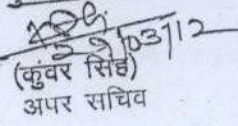 29/03/12
(कुंवर सिंह)
अपर सचिव